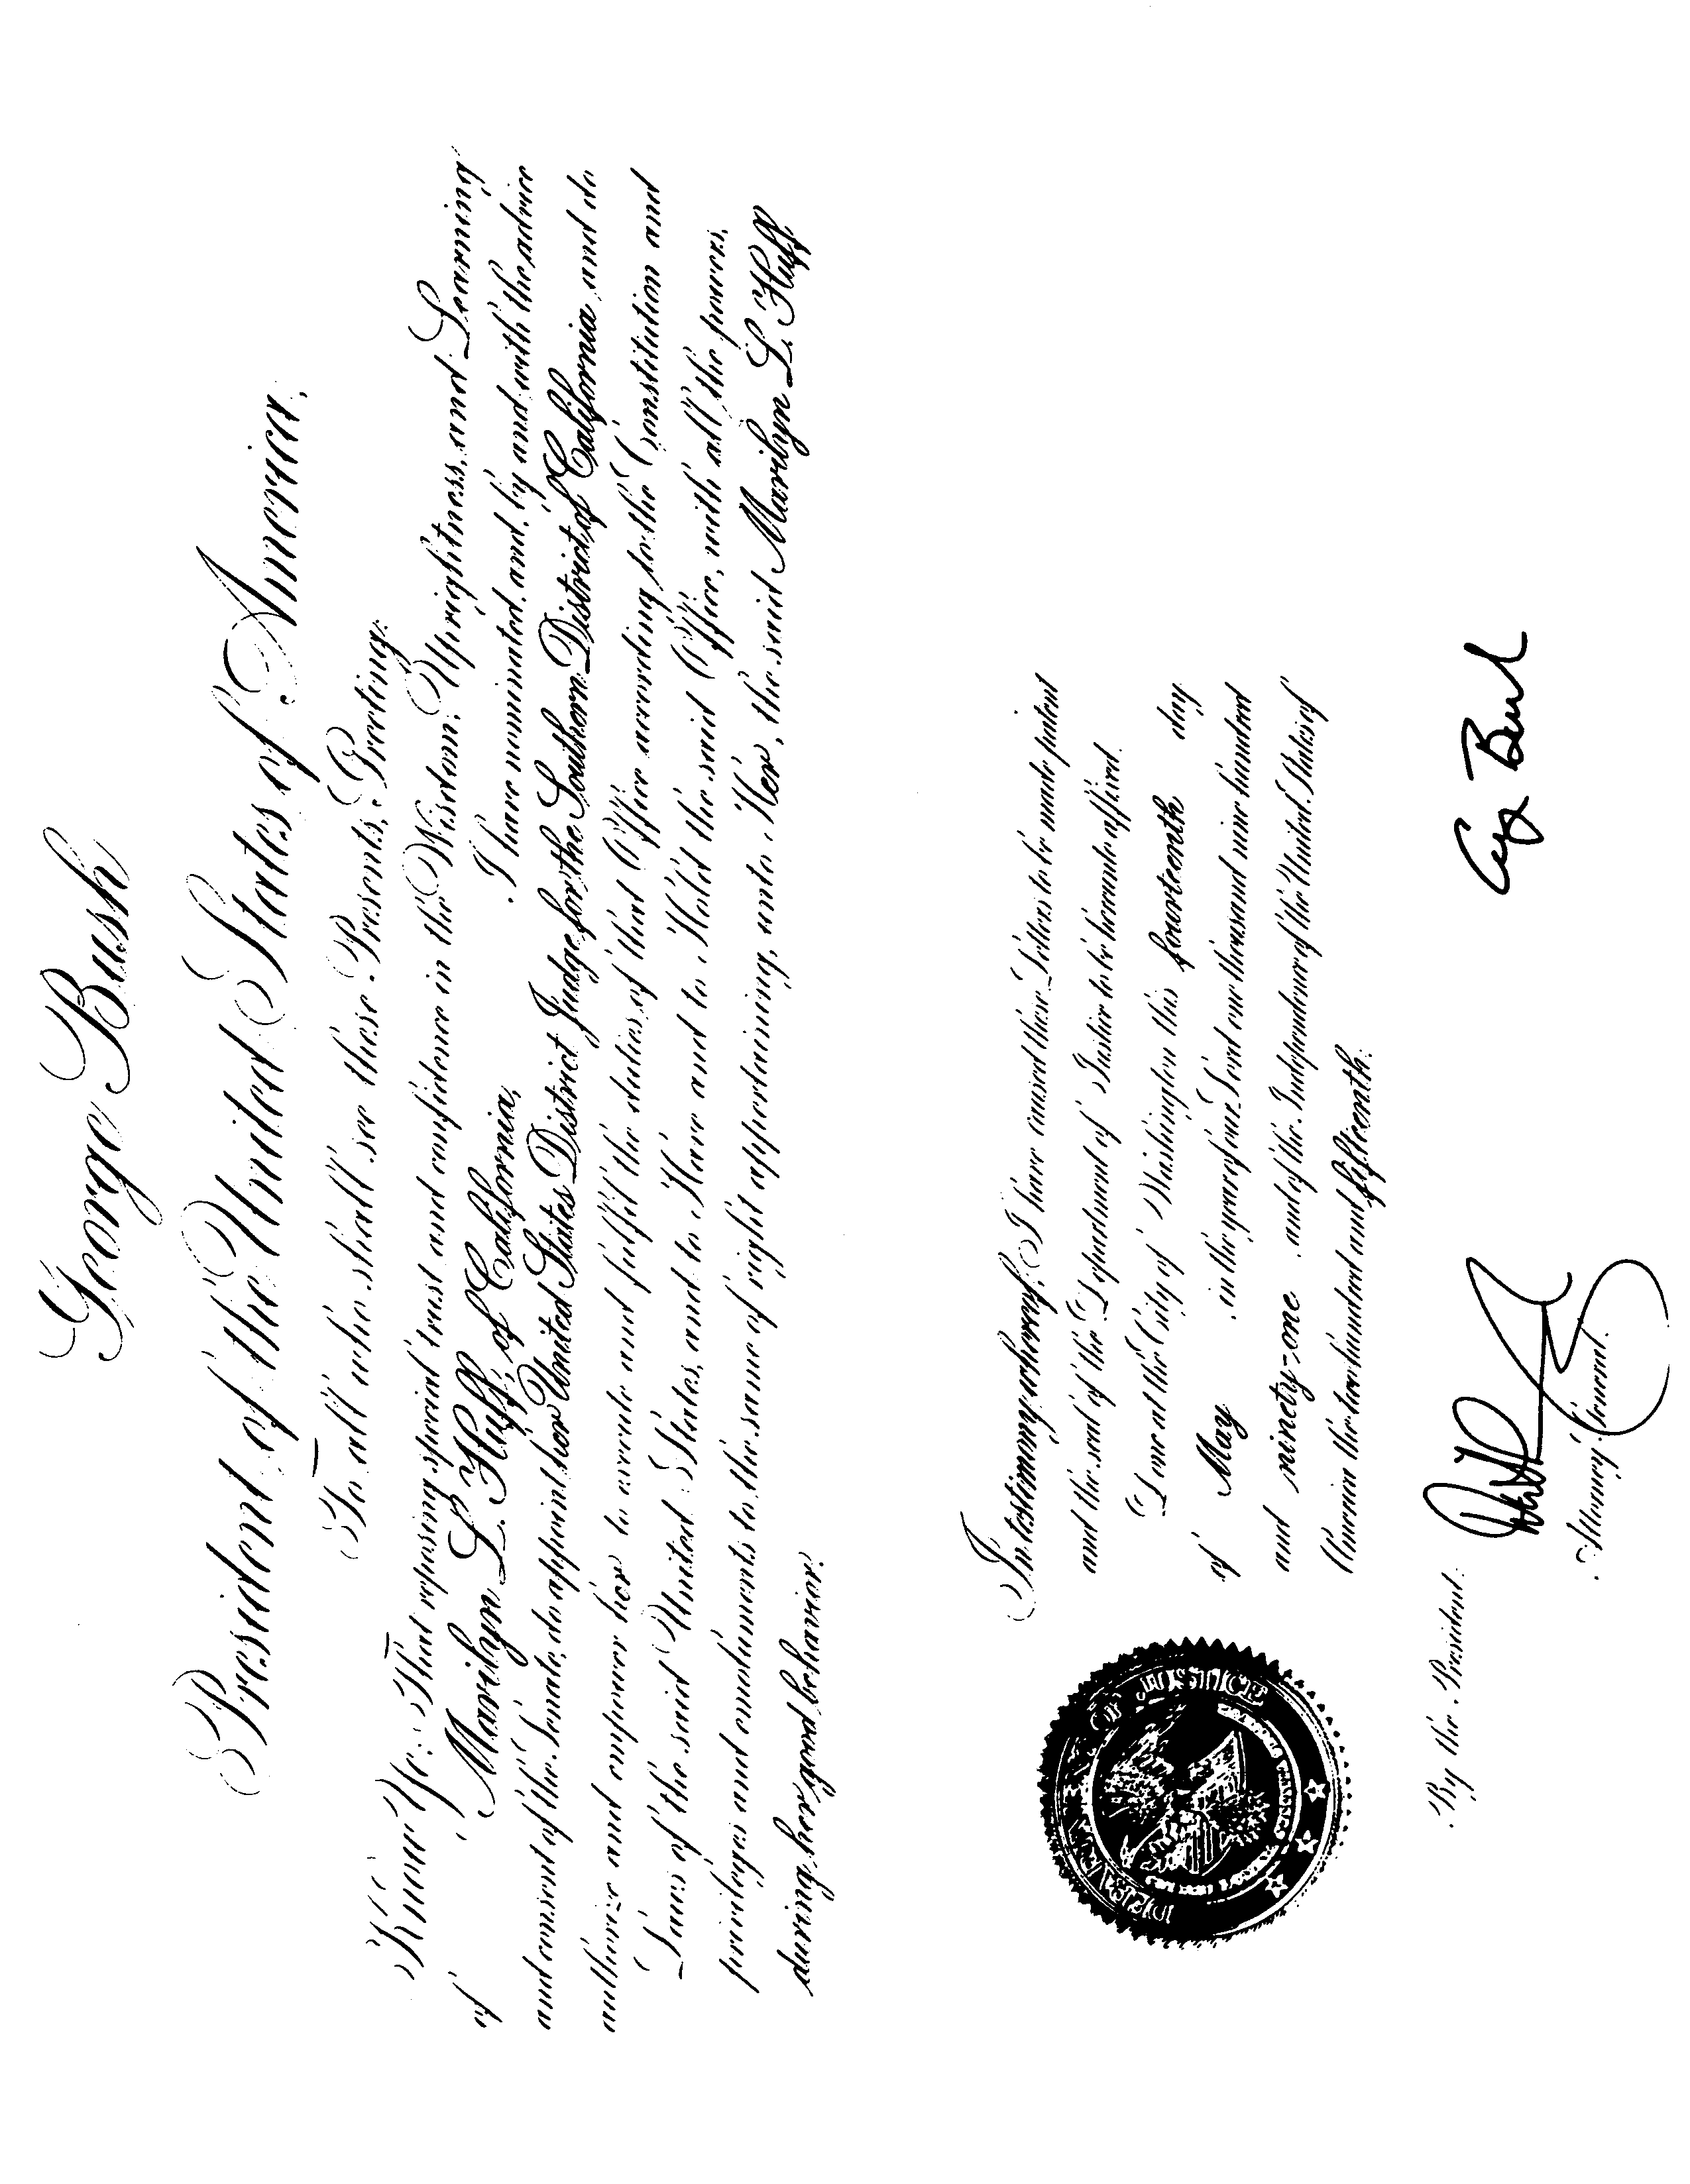 George Bush
President of the United States of America,
To all who shall see these Presents, Greeting:
Know Ye: That reposing special trust and confidence in the Wisdom, Uprightness, and Learning
of Marilyn L. Huff, of California, I have nominated, and, by and with the advice
and consent of the Senate, do appoint her United States District Judge for the Southern District of California and do
authorize and empower her to execute and fulfil the duties of that Office according to the Constitution and
Laws of the said United States, and to Have and to Hold the said Office, with all the powers,
privileges and emoluments to the same of right appertaining, unto Her, the said Marilyn L. Huff
during her good behavior.
In testimony whereof, I have caused these Letters to be made patent
and the seal of the Department of Justice to be hereunto affixed.
Done at the City of Washington this fourteenth day
of May in the year of our Lord one thousand nine hundred
and ninety-one and of the Independence of the United States of
America the two hundred and fifteenth.
DEPARTMENT OF JUSTICE
By the President:
Attorney General.